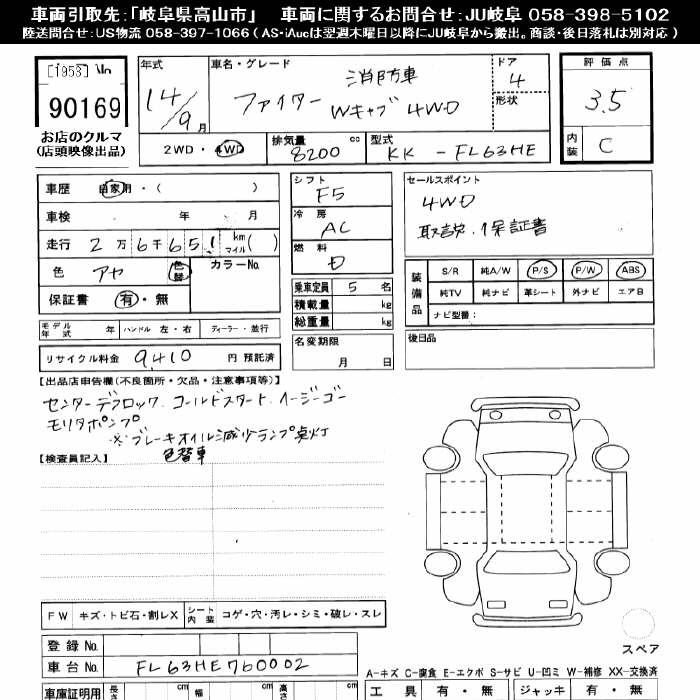 車両引取先:「岐阜県高山市」　車両に関するお問合せ:JU岐阜 058-398-5102
陸送問合せ:US物流 058-397-1066 ( AS・iAucは翌週木曜日以降にJU岐阜から搬出。商談・後日落札は別対応 )
90169
お店のクルマ
(店頭映像出品)
年式
14/9月
車名・グレード
消防車
ファイター Wキャブ 4WD
ドア
4
形状
評価点
3.5
内装 C
2WD・4WD
排気量 8200 cc
型式 KK-FL63HE
車歴 自家用・( )
車検 年 月
走行 2万6千651 km マイル( )
色 アヤ 色替 カラーNo.
保証書 有・無
モデル年式 年 ハンドル 左・右 ディーラー・並行
リサイクル料金 9,410 円 預託済
シフト
F5
冷房
AC
燃料
D
乗車定員 5 名
積載量 kg
総重量 kg
名変期限
月 日
セールスポイント
4WD
取説、保証書
装備品
S/R 純A/W P/S P/W ABS
純TV 純ナビ 革シート 外ナビ エアB
ナビ型番:
後日品
【出品店申告欄(不良箇所・欠品・注意事項等)】
センターデフロック、コールドスタート、イージーゴー
モリタポンプ
※ブレーキオイル減少ランプ点灯
色替車
【検査員記入】
FW キズ・トビ石・割レX シート内装 コゲ・穴・汚レ・シミ・破レ・スレ
登録No.
車台No. FL63HE760002
車庫証明用 長さ cm 幅 cm 高さ cm
スペア
A-キズ C-腐食 E-エクボ S-サビ U-凹ミ W-補修 XX-交換済
工具 有・無 ジャッキ 有・無